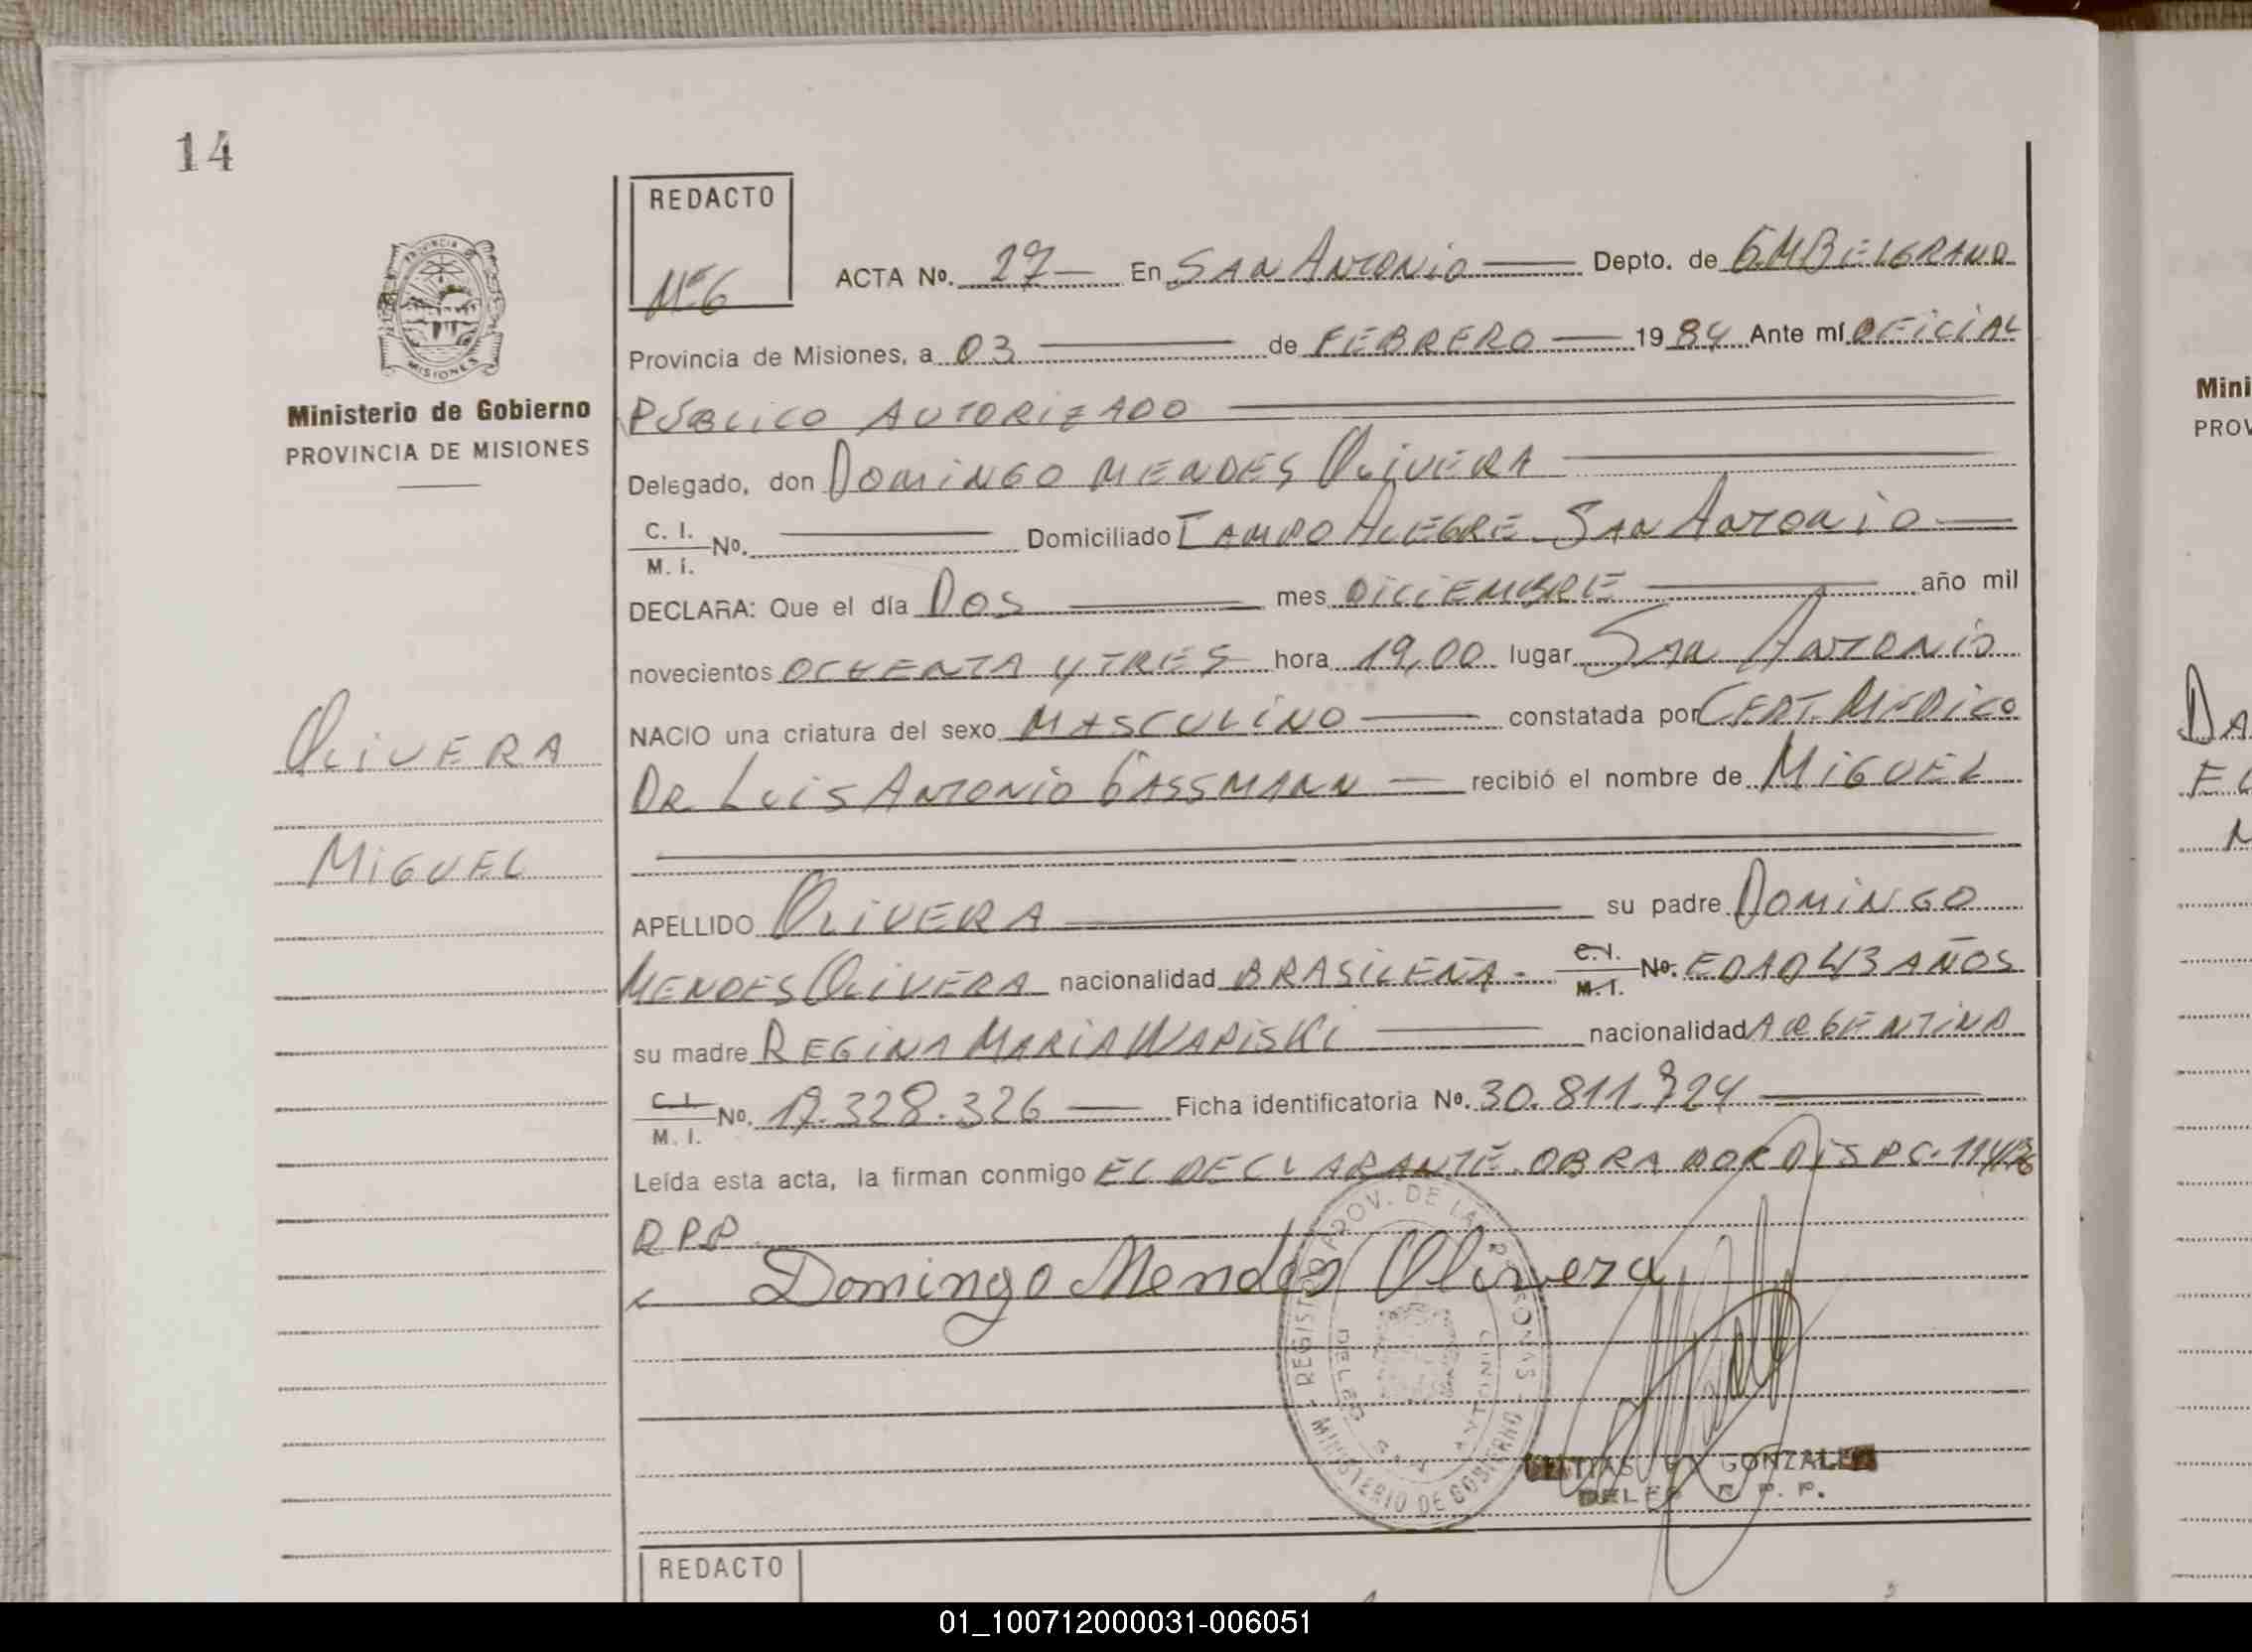 14
REDACTO
Nº6
ACTA Nº. 27 En SAN ANTONIO Depto. de G.M.BELGRANO
Provincia de Misiones, a 03 de FEBRERO 1984 Ante mí OFICIAL
PÚBLICO AUTORIZADO
Delegado, don DOMINGO MENDES OLIVERA
C. I.
M. I. Nº. Domiciliado CAMPO ALEGRE - SAN ANTONIO
DECLARA: Que el día DOS mes DICIEMBRE año mil
novecientos OCHENTA Y TRES hora 19,00 lugar SAN ANTONIO
NACIO una criatura del sexo MASCULINO constatada por CERT. MÉDICO
DR LUIS ANTONIO GASSMANN recibió el nombre de MIGUEL
APELLIDO OLIVERA su padre DOMINGO
MENDES OLIVERA nacionalidad BRASILEÑA - C.I. M.I. Nº. EDAD 43 AÑOS
su madre REGINA MARIA WARISKI nacionalidad ARGENTINA
C. I.
M. I. Nº. 17.328.326 Ficha identificatoria Nº. 30.811.724
Leída esta acta, la firman conmigo EL DECLARANTE. OBRA POR DISP C.
R.P.P.
Domingo Mendes Olivera
REGISTRO PROV. DE LAS PERSONAS
MINISTERIO DE GOBIERNO
DELEG. SAN ANTONIO
GONZALEZ
DELEG R. P. P.
PROVINCIA DE
MISIONES
Ministerio de Gobierno
PROVINCIA DE MISIONES
OLIVERA
MIGUEL
REDACTO
Mini
PROV
DA
EL
01_100712000031-006051